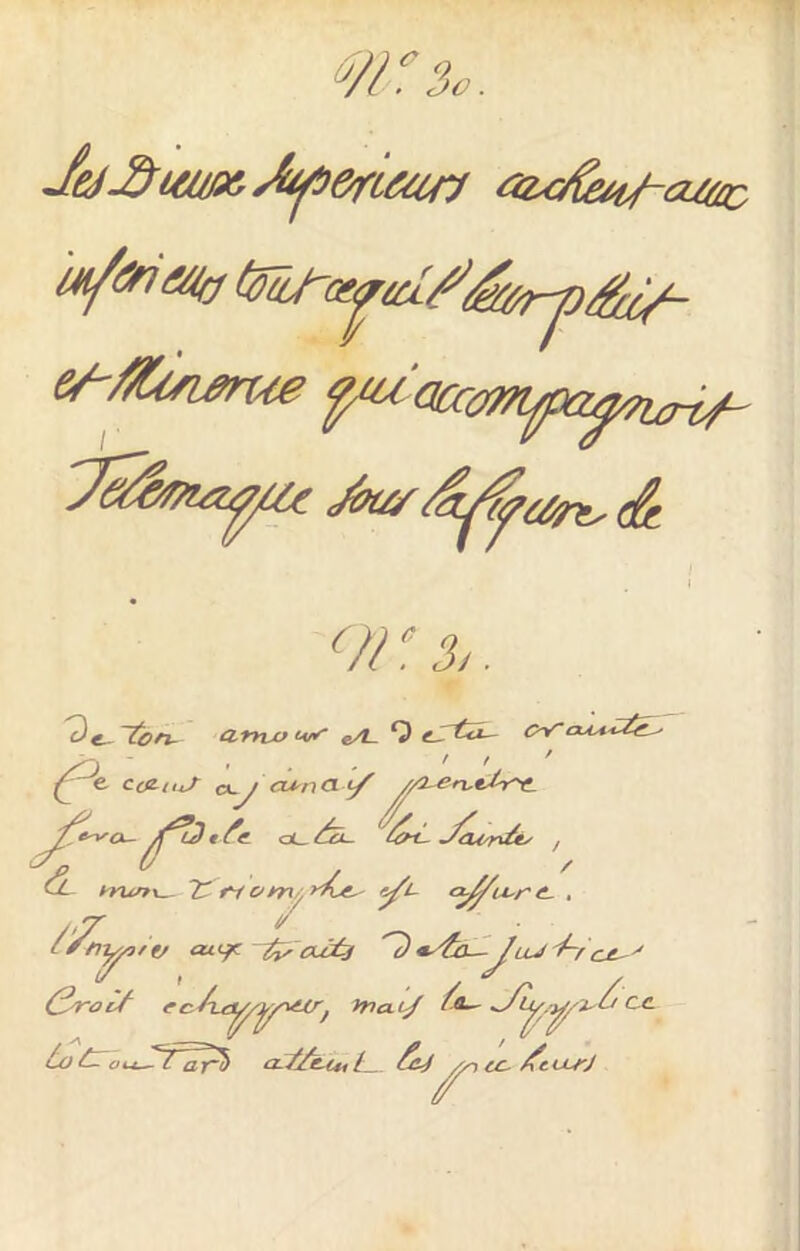 N.º 30.
Les Dieux Superieurs cachent aux
inferieurs tout ce qui leur plait
et Minerue qui accompagnoit
Telemaque sous la figure de
N.º 31.
De ton amour et De ta crainte
Le cœur a jamais penetré
sera fidele a ta loi Sainte,
Et mon Triomphe est assuré.
L'Impie aux traits De ta Justice
Croit echapper, mais la Supplice
tot ou Tard attent les pecheurs